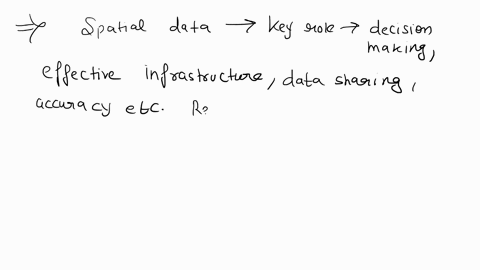 ⇒ Spatial data → key role → decision
making,
effective infrastructure, data sharing,
accuracy etc.